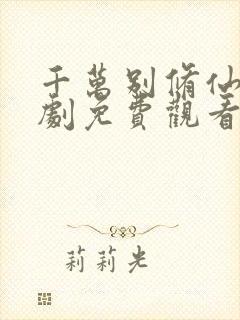 千萬別脩仙
劇免費觀看
莉莉光